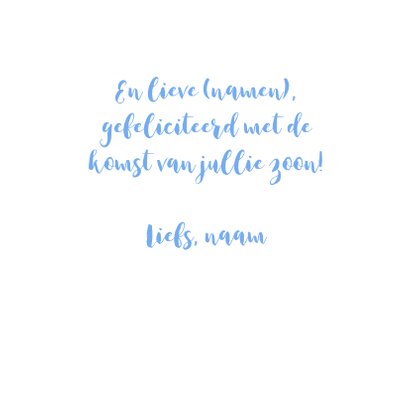 En lieve (namen),
gefeliciteerd met de
komst van jullie zoon!
Liefs, naam